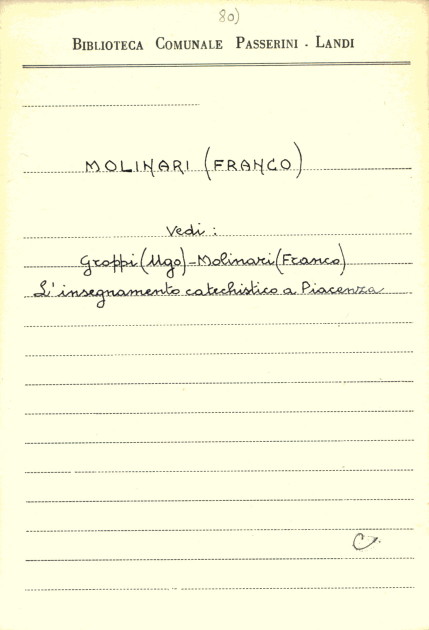 80)
BIBLIOTECA COMUNALE PASSERINI - LANDI
MOLINARI (FRANCO)
Vedi :
Groppi (Ugo) - Molinari (Franco)
L'insegnamento catechistico a Piacenza